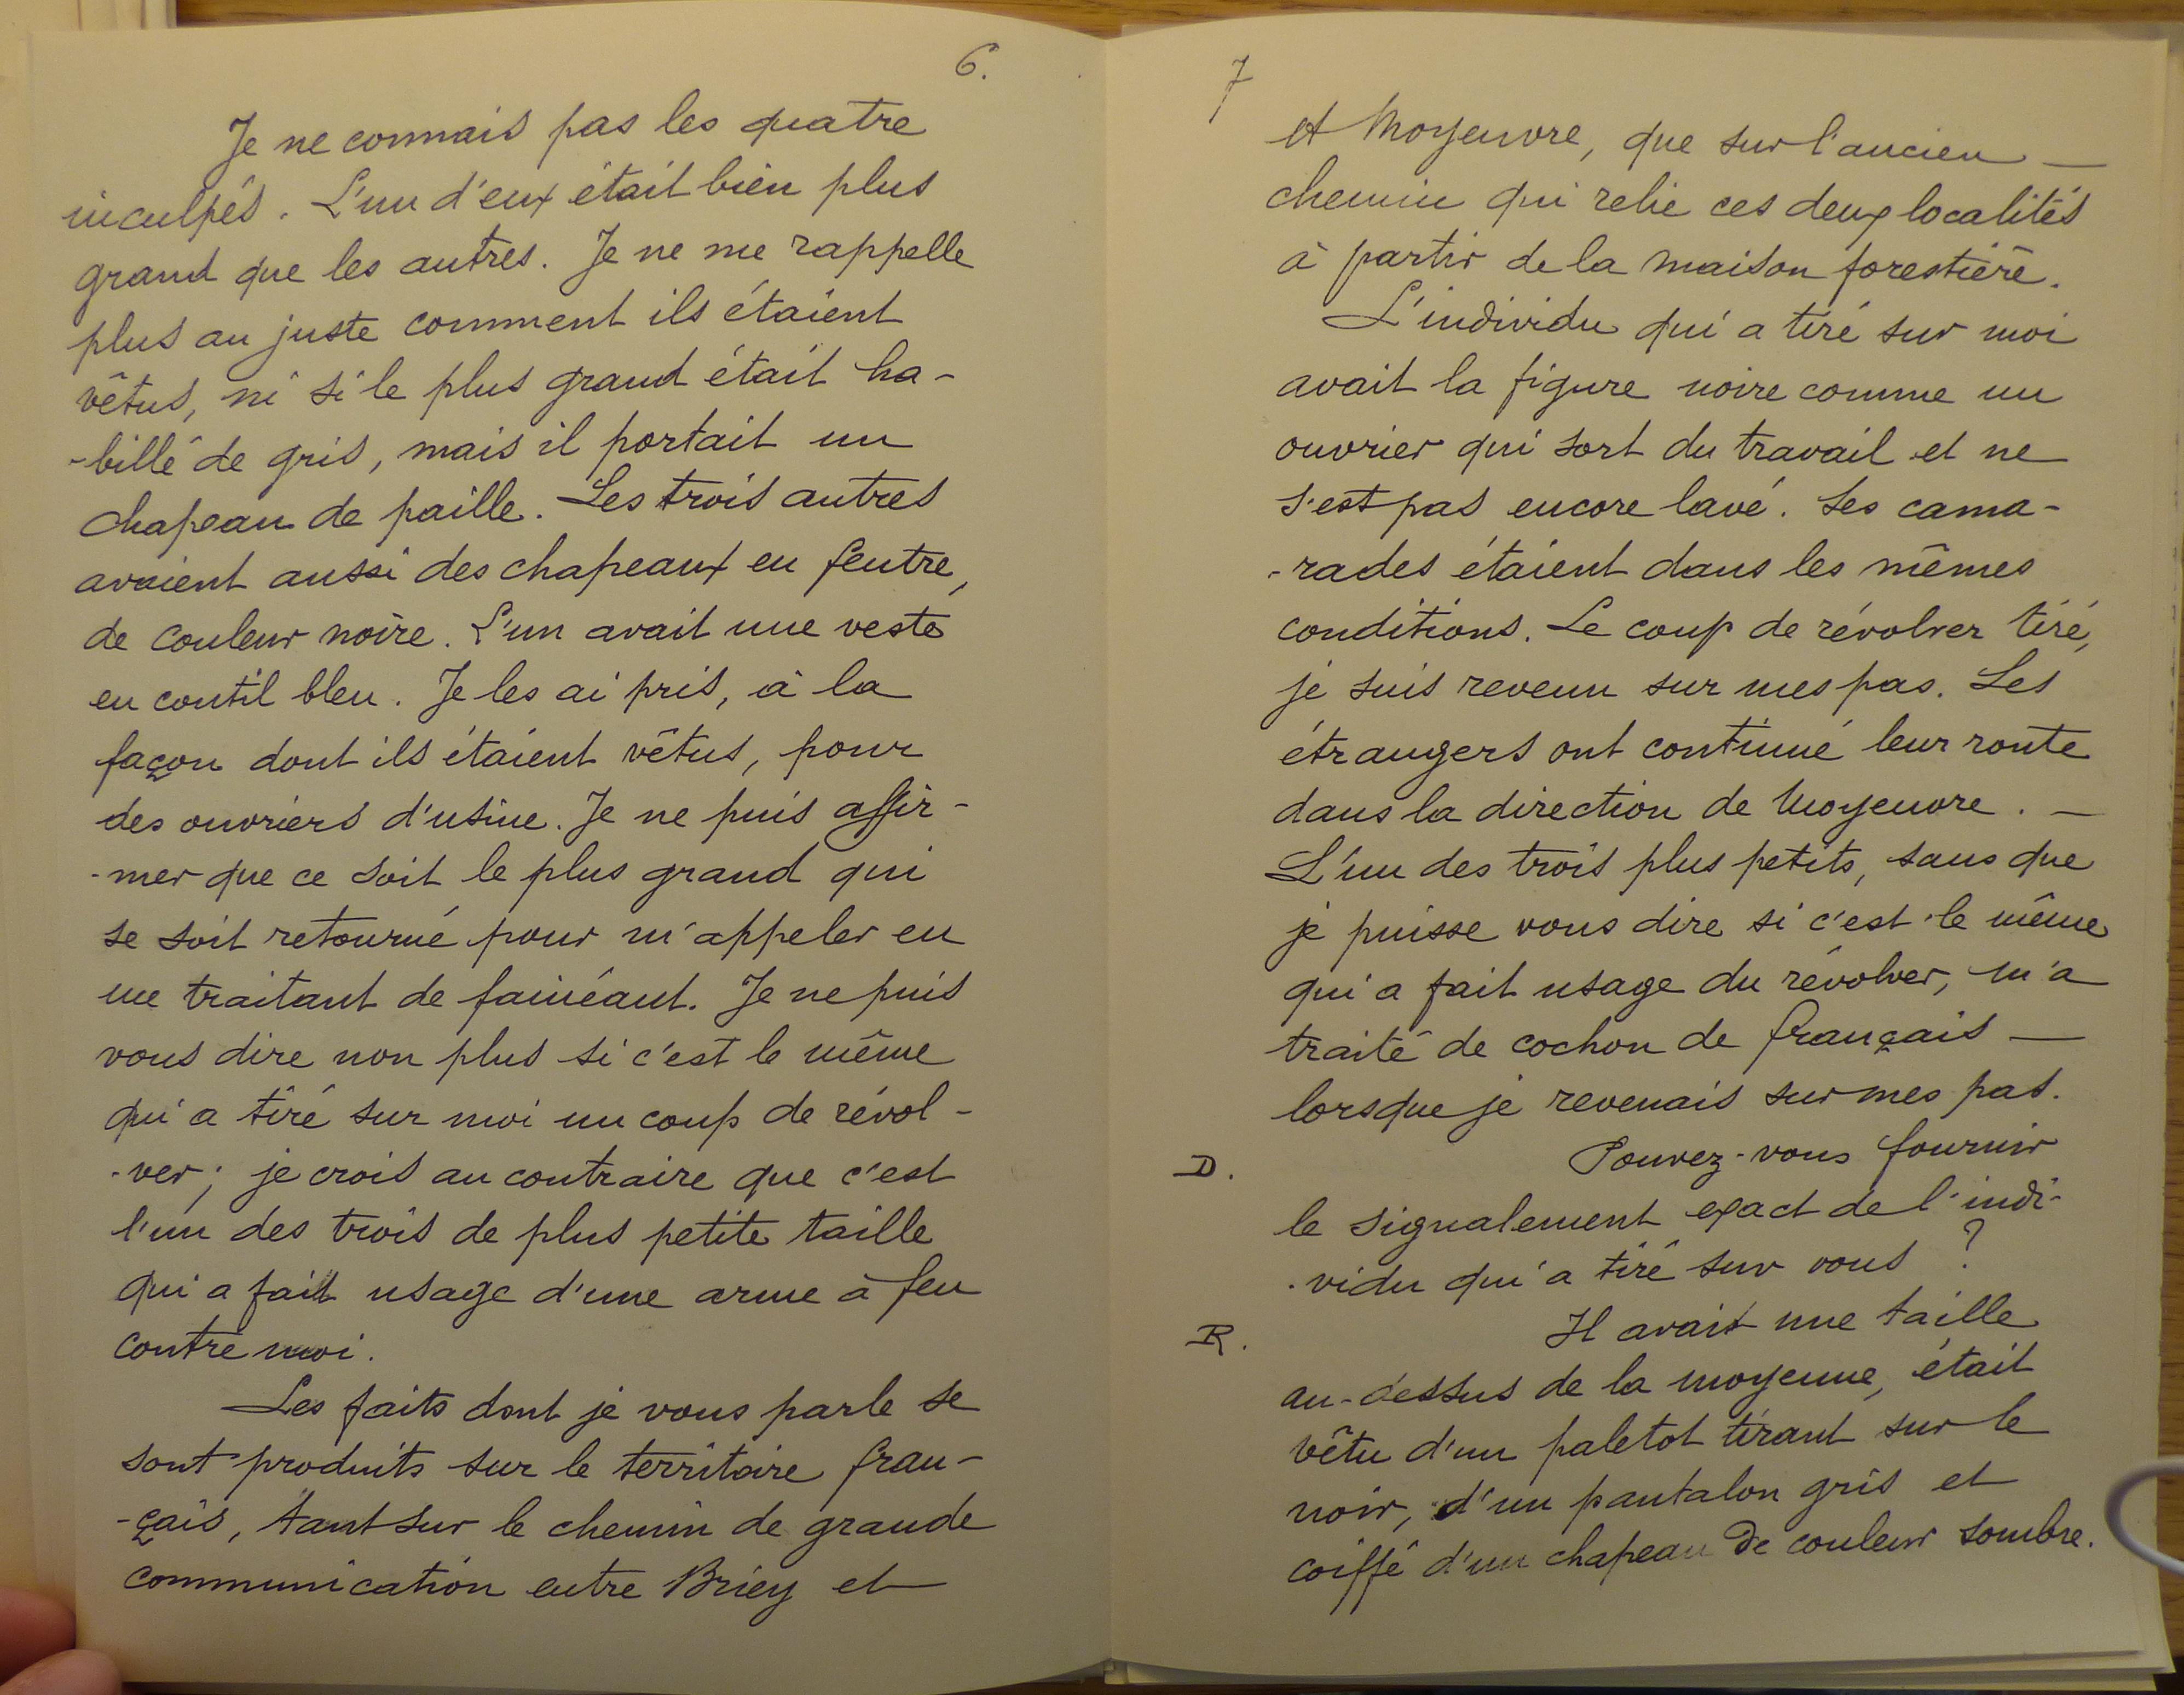 6.
Je ne connais pas les quatre
inculpés. L'un d'eux était bien plus
grand que les autres. Je ne me rappelle
plus au juste comment ils étaient
vêtus, ni si le plus grand était ha-
-billé de gris, mais il portait un
chapeau de paille. Les trois autres
avaient aussi des chapeaux en feutre,
de couleur noire. L'un avait une veste
en coutil bleu. Je les ai pris, à la
façon dont ils étaient vêtus, pour
des ouvriers d'usine. Je ne puis affir-
-mer que ce soit le plus grand qui
se soit retourné pour m'appeler en
me traitant de fainéant. Je ne puis
vous dire non plus si c'est le même
qui a tiré sur moi un coup de révol-
-ver; je crois au contraire que c'est
l'un des trois de plus petite taille
qui a fait usage d'une arme à feu
contre moi.
Les faits dont je vous parle se
sont produits sur le territoire fran-
-çais, tant sur le chemin de grande
communication entre Briey et
7
et Moyeuvre, que sur l'ancien —
chemin qui relie ces deux localités
à partir de la maison forestière.
L'individu qui a tiré sur moi
avait la figure noire comme un
ouvrier qui sort du travail et ne
s'est pas encore lavé. Ses cama-
-rades étaient dans les mêmes
conditions. Le coup de révolver tiré,
je suis revenu sur mes pas. Les
étrangers ont continué leur route
dans la direction de Moyeuvre. —
L'un des trois plus petits, sans que
je puisse vous dire si c'est le même
qui a fait usage du révolver, m'a
traité de cochon de français —
lorsque je revenais sur mes pas.
D. Pouvez-vous fournir
le signalement exact de l'indi-
-vidu qui a tiré sur vous ?
R. Il avait une taille
au-dessus de la moyenne, était
vêtu d'un paletot tirant sur le
noir, d'un pantalon gris et
coiffé d'un chapeau de couleur sombre.